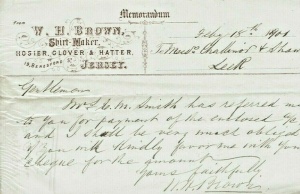 Memorandum
From
W. H. BROWN,
Shirt-Maker,
HOSIER, GLOVER & HATTER,
JERSEY.
Feby 15th 1901
To Messrs Challinor & Shaw
Leek
Gentlemen
Mr S. C. M. Smith has referred me
to you for payment of the enclosed
and I shall be very much obliged
if you will kindly favor me with your
cheque for the amount
Yours faithfully
W. H. Brown